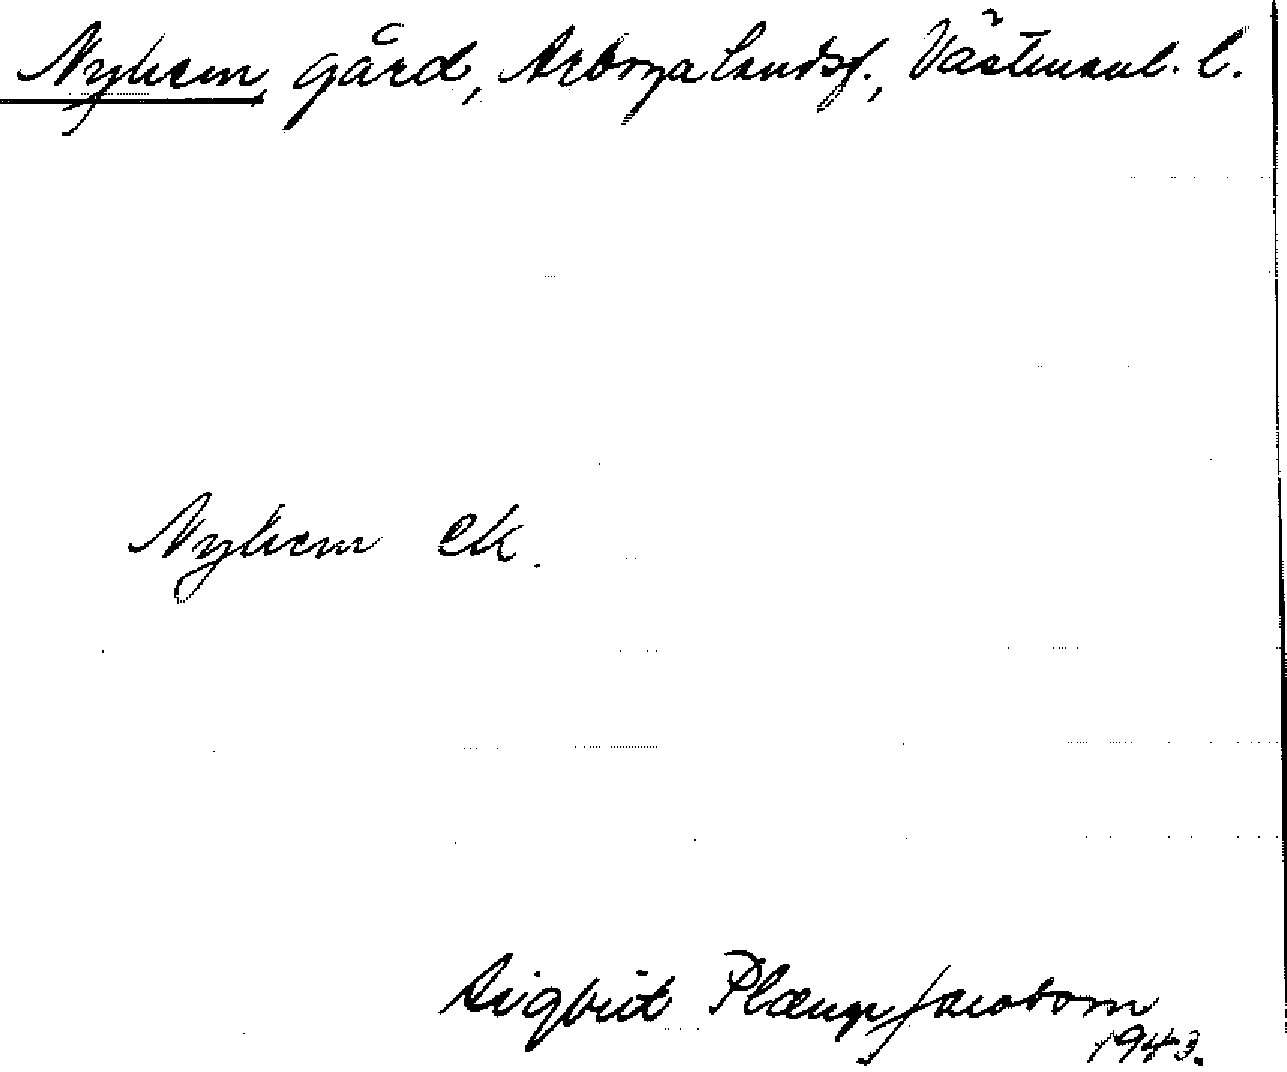 Nyhem, gård, Arboga landsf., Västmanl. l.
Nyhem ek.
Sigbrit Plænge Jacobson
1943.